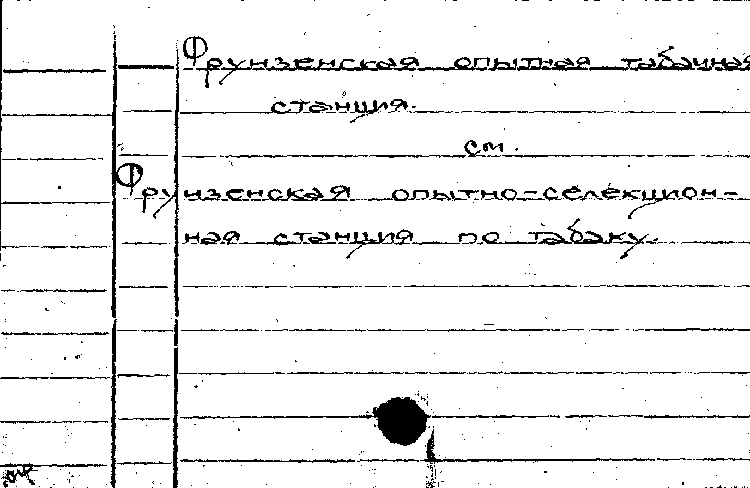 Фрунзенская опытная табачная
станция.
см.
Фрунзенская опытно-селекцион-
ная станция по табаку.